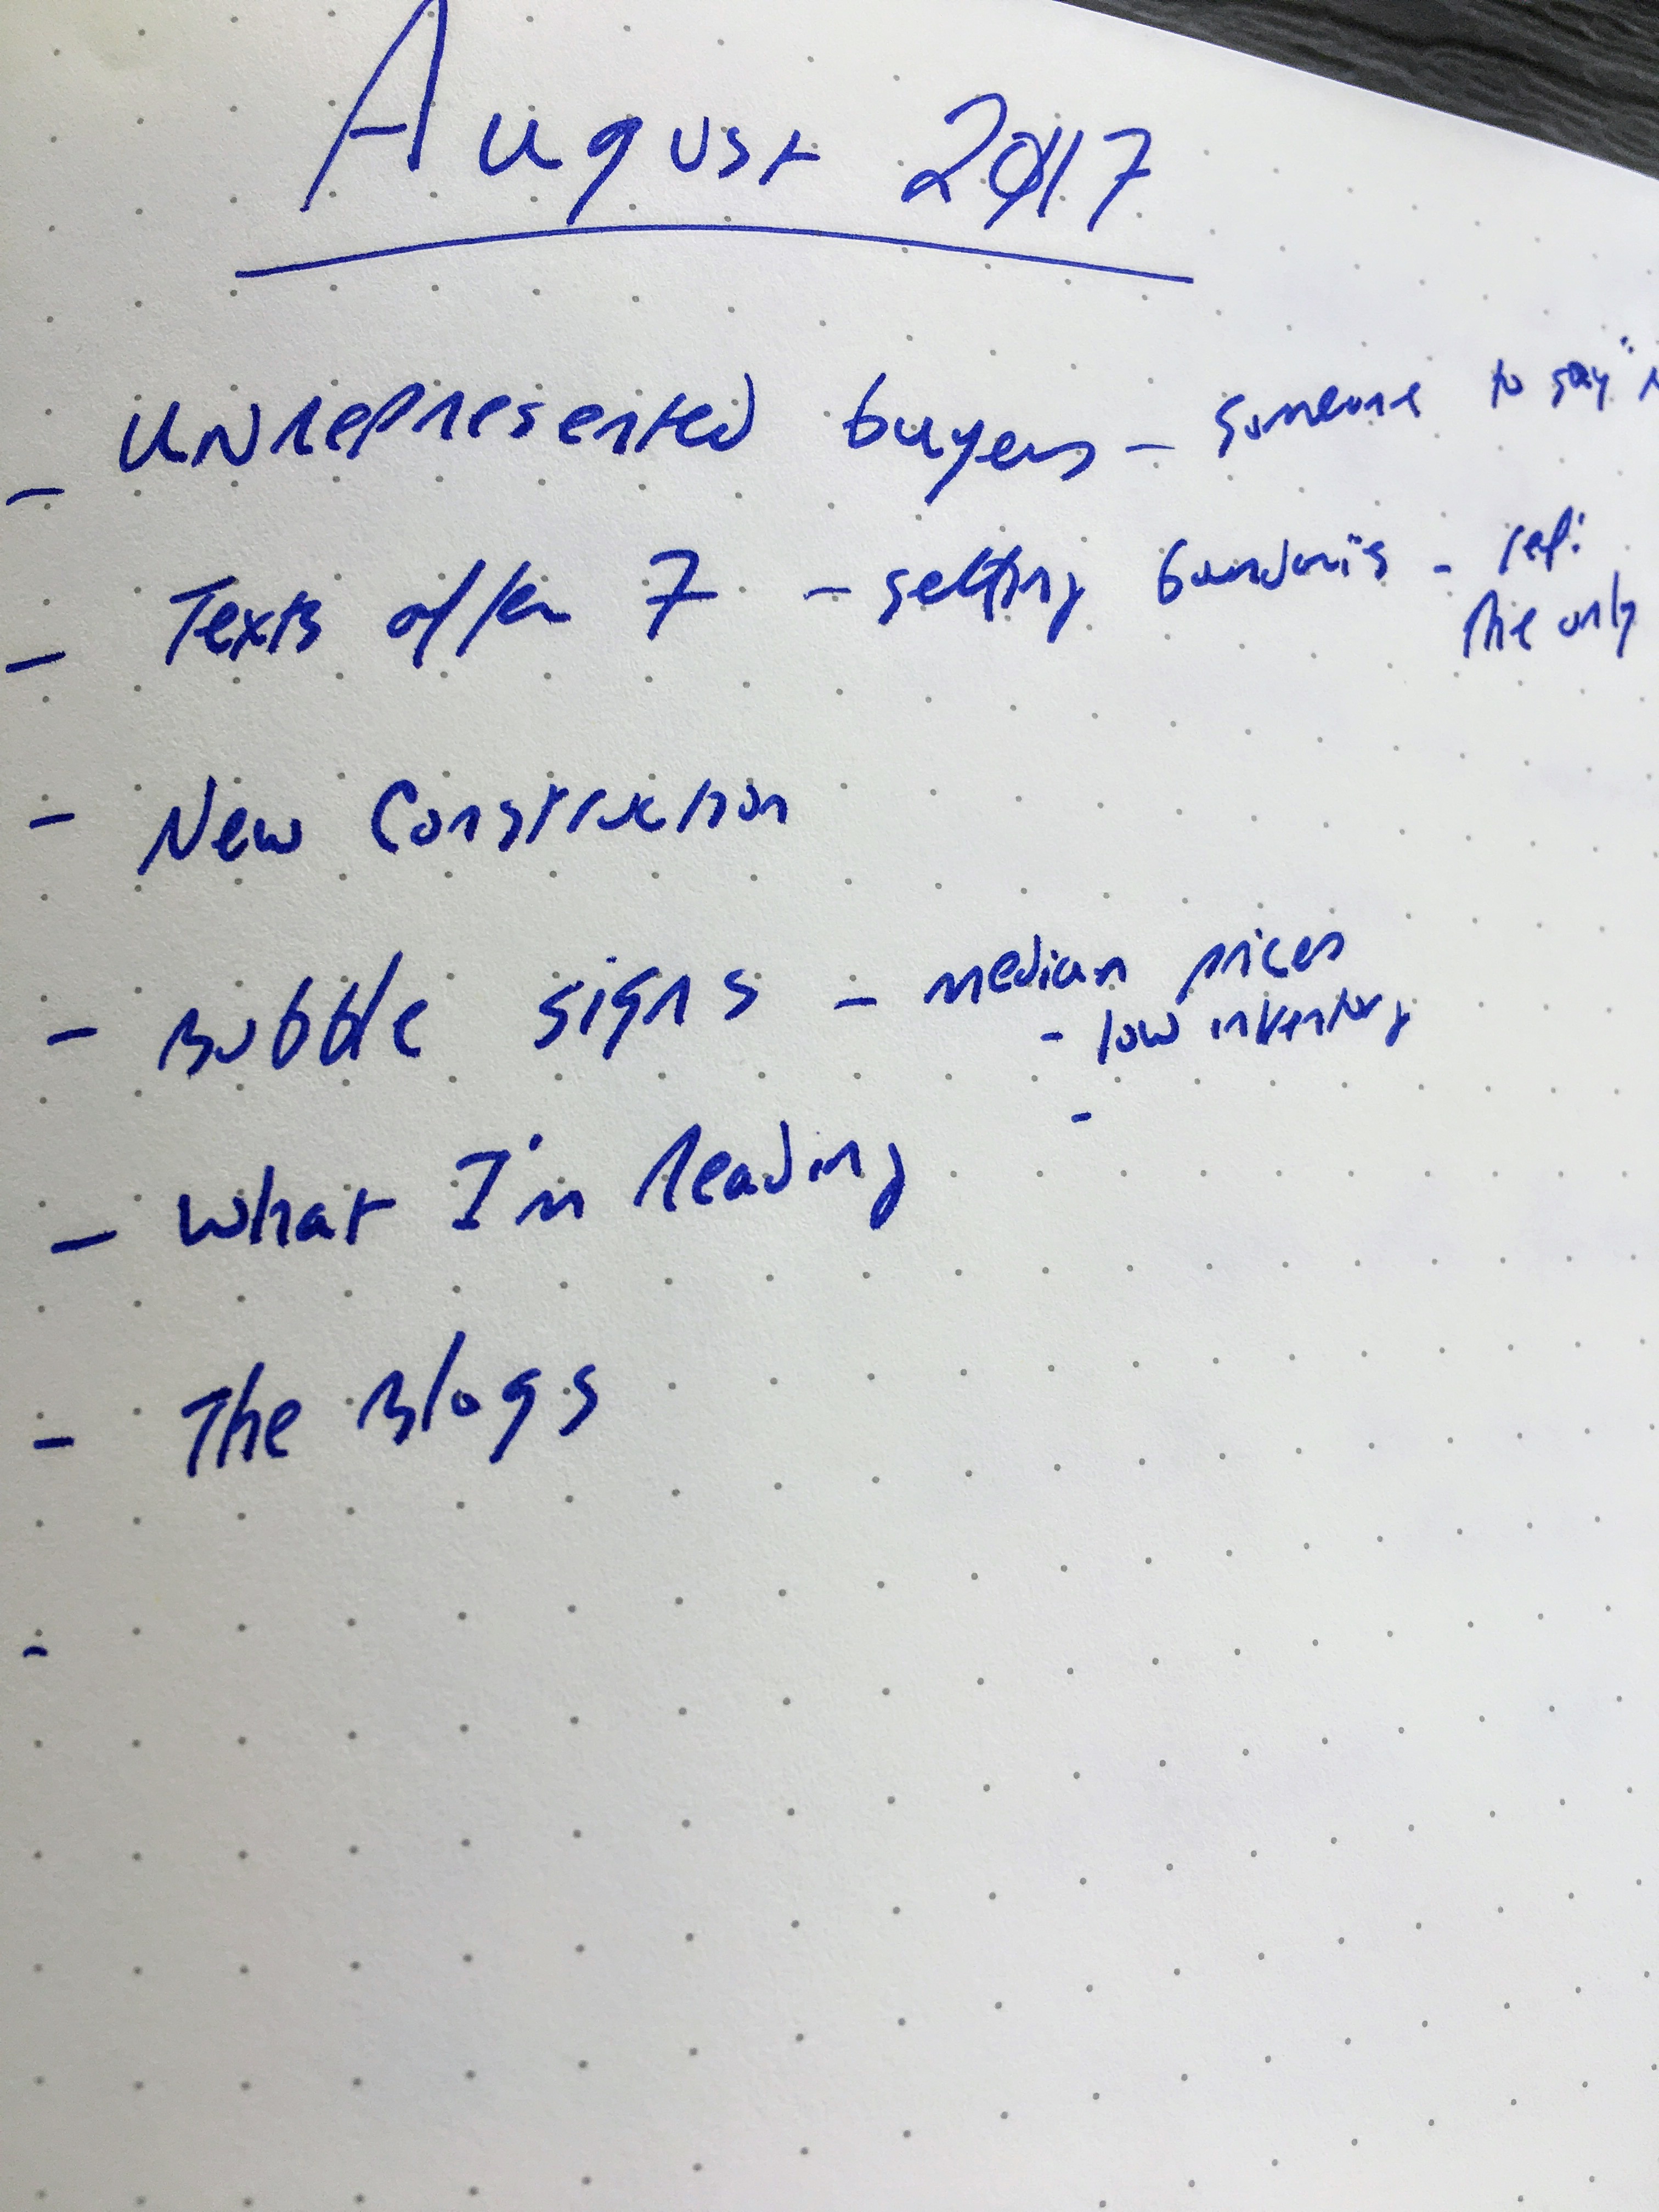 August 2017
- Unrepresented buyers - someone to say "
- Texts after 7 - setting boundaries - ref:
the only
- New Construction
- Bubble signs - median prices
- low inventory
-
- What I'm Reading
- The Blogs
-